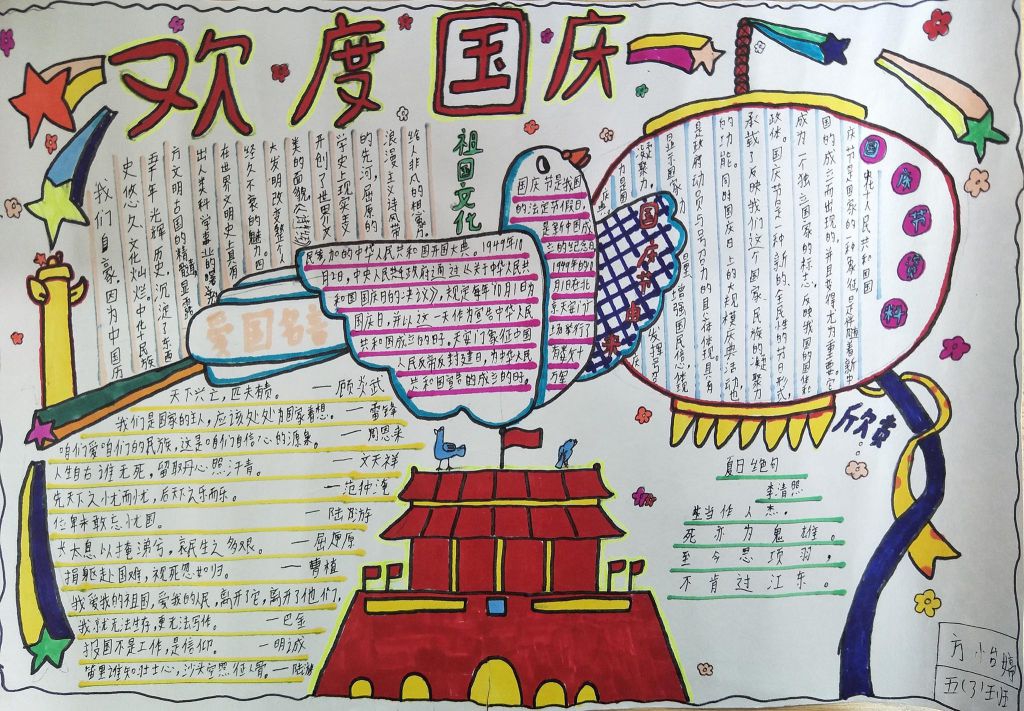 欢度国庆
祖国文化
我们自豪,因为中国历
史悠久,文化灿烂。中华民族
五千年光辉历史,沉淀了东西
方文明古国的精髓,
在世界文明史上具有
经久不衰的魅力。四
大发明改变整个人
类的面貌,
开创了世界文
学史上现实主义
的先河,屈原的
浪漫主义诗风带
国庆节是我国
的法定节假日,
是新中国成
立的纪念日
1949年的10
月1日在北
京天安门
广场举行了
有数十
万军
民参加的中华人民共和国开国大典。1949年10
月2日,中央人民政府通过《关于中华人民共
和国国庆日的决议》,规定每年10月1日为
国庆日,并以这一天作为宣告中华人民
共和国成立的日子。
国庆节由来
国庆节资料
中华人民共和国
国的成立而出现的,并且变得尤为重要。它
成为一个独立国家的标志,反映我国的国体和
政体。国庆节是一种新的、全民性的节日形式,
承载了反映我们这个国家、民族的凝聚力
的功能。同时国庆日上的大规模庆典活动也
是政府动员与号召力的具体体现。具有
显示国家力量、增强国民信心,体现
凝聚力,发挥号召力
爱国名言
天下兴亡,匹夫有责。 ——顾炎武
我们是国家的主人,应该处处为国家着想。——雷锋
咱们爱咱们的民族,这是咱们自信心的源泉。——周恩来
人生自古谁无死,留取丹心照汗青。——文天祥
先天下之忧而忧,后天下之乐而乐。——范仲淹
位卑未敢忘忧国。——陆游
长太息以掩涕兮,哀民生之多艰。——屈原
捐躯赴国难,视死忽如归。——曹植
我爱我的祖国,爱我的人民,离开了它,离开了他们,
我就无法生存,更无法写作。——巴金
报国不是工作,是信仰。——明诚
笛里谁知壮士心,沙头空照征人骨。——陆游
欣赏
夏日绝句
李清照
生当作人杰,
死亦为鬼雄。
至今思项羽,
不肯过江东。
五(3)班